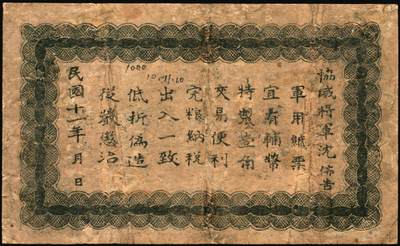 協威將軍沈佈告
軍用鈔票
宜有輔幣
特製壹角
交易便利
完糧納稅
出入一致
低折偽造
從嚴懲治
民國十一年 月 日
1000